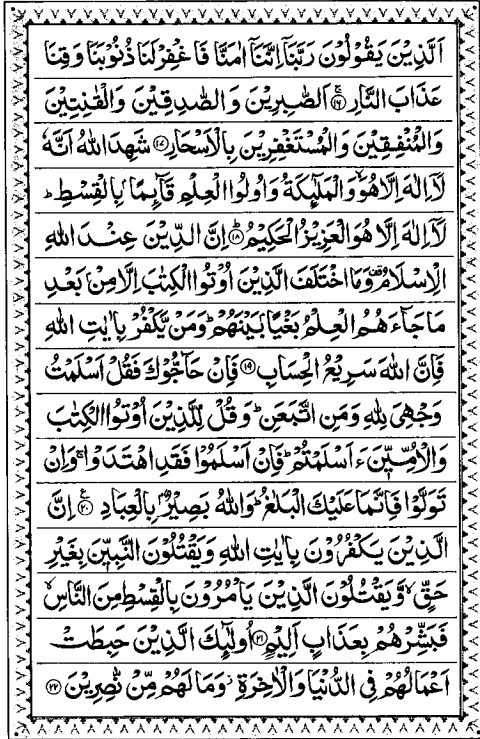 اَلَّذِيْنَ يَقُوْلُوْنَ رَبَّنَاۤ اِنَّنَاۤ اٰمَنَّا فَاغْفِرْ لَنَا ذُنُوْبَنَا وَقِنَا
عَذَابَ النَّارِ ۚ‏﴿۱۶﴾ اَلصّٰبِرِيْنَ وَالصّٰدِقِيْنَ وَالْقٰنِتِيْنَ
وَالْمُنْفِقِيْنَ وَالْمُسْتَغْفِرِيْنَ بِالْاَسْحَارِ ﴿۱۷﴾ شَهِدَ اللّٰهُ اَنَّهٗ
لَاۤ اِلٰهَ اِلَّا هُوَ ۙ وَالْمَلٰٓئِكَةُ وَاُولُوا الْعِلْمِ قَآئِمًاۢ بِالْقِسْطِ ؕ
لَاۤ اِلٰهَ اِلَّا هُوَ الْعَزِيْزُ الْحَكِيْمُ ؕ﴿۱۸﴾ اِنَّ الدِّيْنَ عِنْدَ اللّٰهِ
الْاِسْلَامُ ۟ وَمَا اخْتَلَفَ الَّذِيْنَ اُوْتُوا الْكِتٰبَ اِلَّا مِنْۢ بَعْدِ
مَا جَآءَهُمُ الْعِلْمُ بَغْيًاۢ بَيْنَهُمْ ؕ وَمَنْ يَّكْفُرْ بِاٰيٰتِ اللّٰهِ
فَاِنَّ اللّٰهَ سَرِيْعُ الْحِسَابِ ﴿۱۹﴾ فَاِنْ حَآجُّوْكَ فَقُلْ اَسْلَمْتُ
وَجْهِيَ لِلّٰهِ وَمَنِ اتَّبَعَنِ ؕ وَقُلْ لِّلَّذِيْنَ اُوْتُوا الْكِتٰبَ
وَالْاُمِّيّٖنَ ءَاَسْلَمْتُمْ ؕ فَاِنْ اَسْلَمُوْا فَقَدِ اهْتَدَوْا ۚ وَاِنْ
تَوَلَّوْا فَاِنَّمَا عَلَيْكَ الْبَلٰغُ ؕ وَاللّٰهُ بَصِيْرٌۢ بِالْعِبَادِ ﴿۲۰﴾ ع اِنَّ
الَّذِيْنَ يَكْفُرُوْنَ بِاٰيٰتِ اللّٰهِ وَيَقْتُلُوْنَ النَّبِيّٖنَ بِغَيْرِ
حَقٍّ ۙ وَّيَقْتُلُوْنَ الَّذِيْنَ يَاْمُرُوْنَ بِالْقِسْطِ مِنَ النَّاسِ ۙ
فَبَشِّرْهُمْ بِعَذَابٍ اَلِيْمٍ ﴿۲۱﴾ اُولٰٓئِكَ الَّذِيْنَ حَبِطَتْ
اَعْمَالُهُمْ فِي الدُّنْيَا وَالْاٰخِرَةِ ؗ وَمَا لَهُمْ مِّنْ نّٰصِرِيْنَ ﴿۲۲﴾